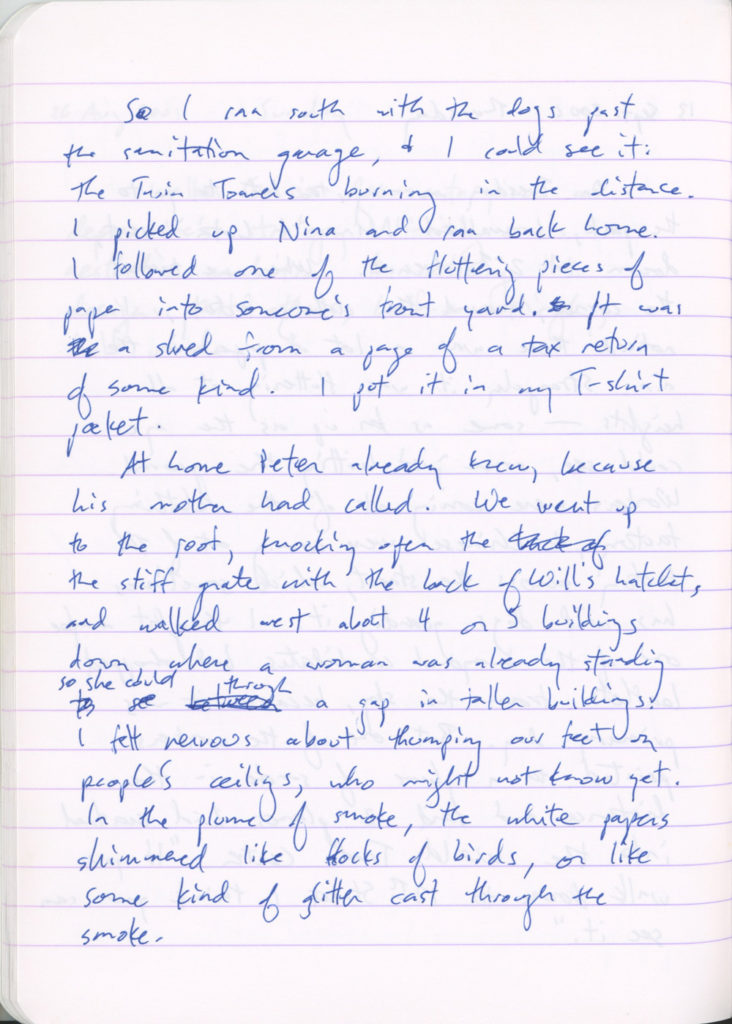 So I ran south with the dogs past
the sanitation garage, & I could see it:
the Twin Towers burning in the distance.
I picked up Nina and ran back home.
I followed one of the fluttering pieces of
paper into someone's front yard. It was
a shred from a page of a tax return
of some kind. I put it in my T-shirt
pocket.
At home Peter already knew, because
his mother had called. We went up
to the roof, knocking open the
the stiff grate with the back of Will's hatchet,
and walked west about 4 or 5 buildings
down where a woman was already standing
so she could see through a gap in taller buildings.
I felt nervous about thumping our feet on
people's ceilings, who might not know yet.
In the plume of smoke, the white papers
shimmered like flocks of birds, or like
some kind of glitter cast through the
smoke.